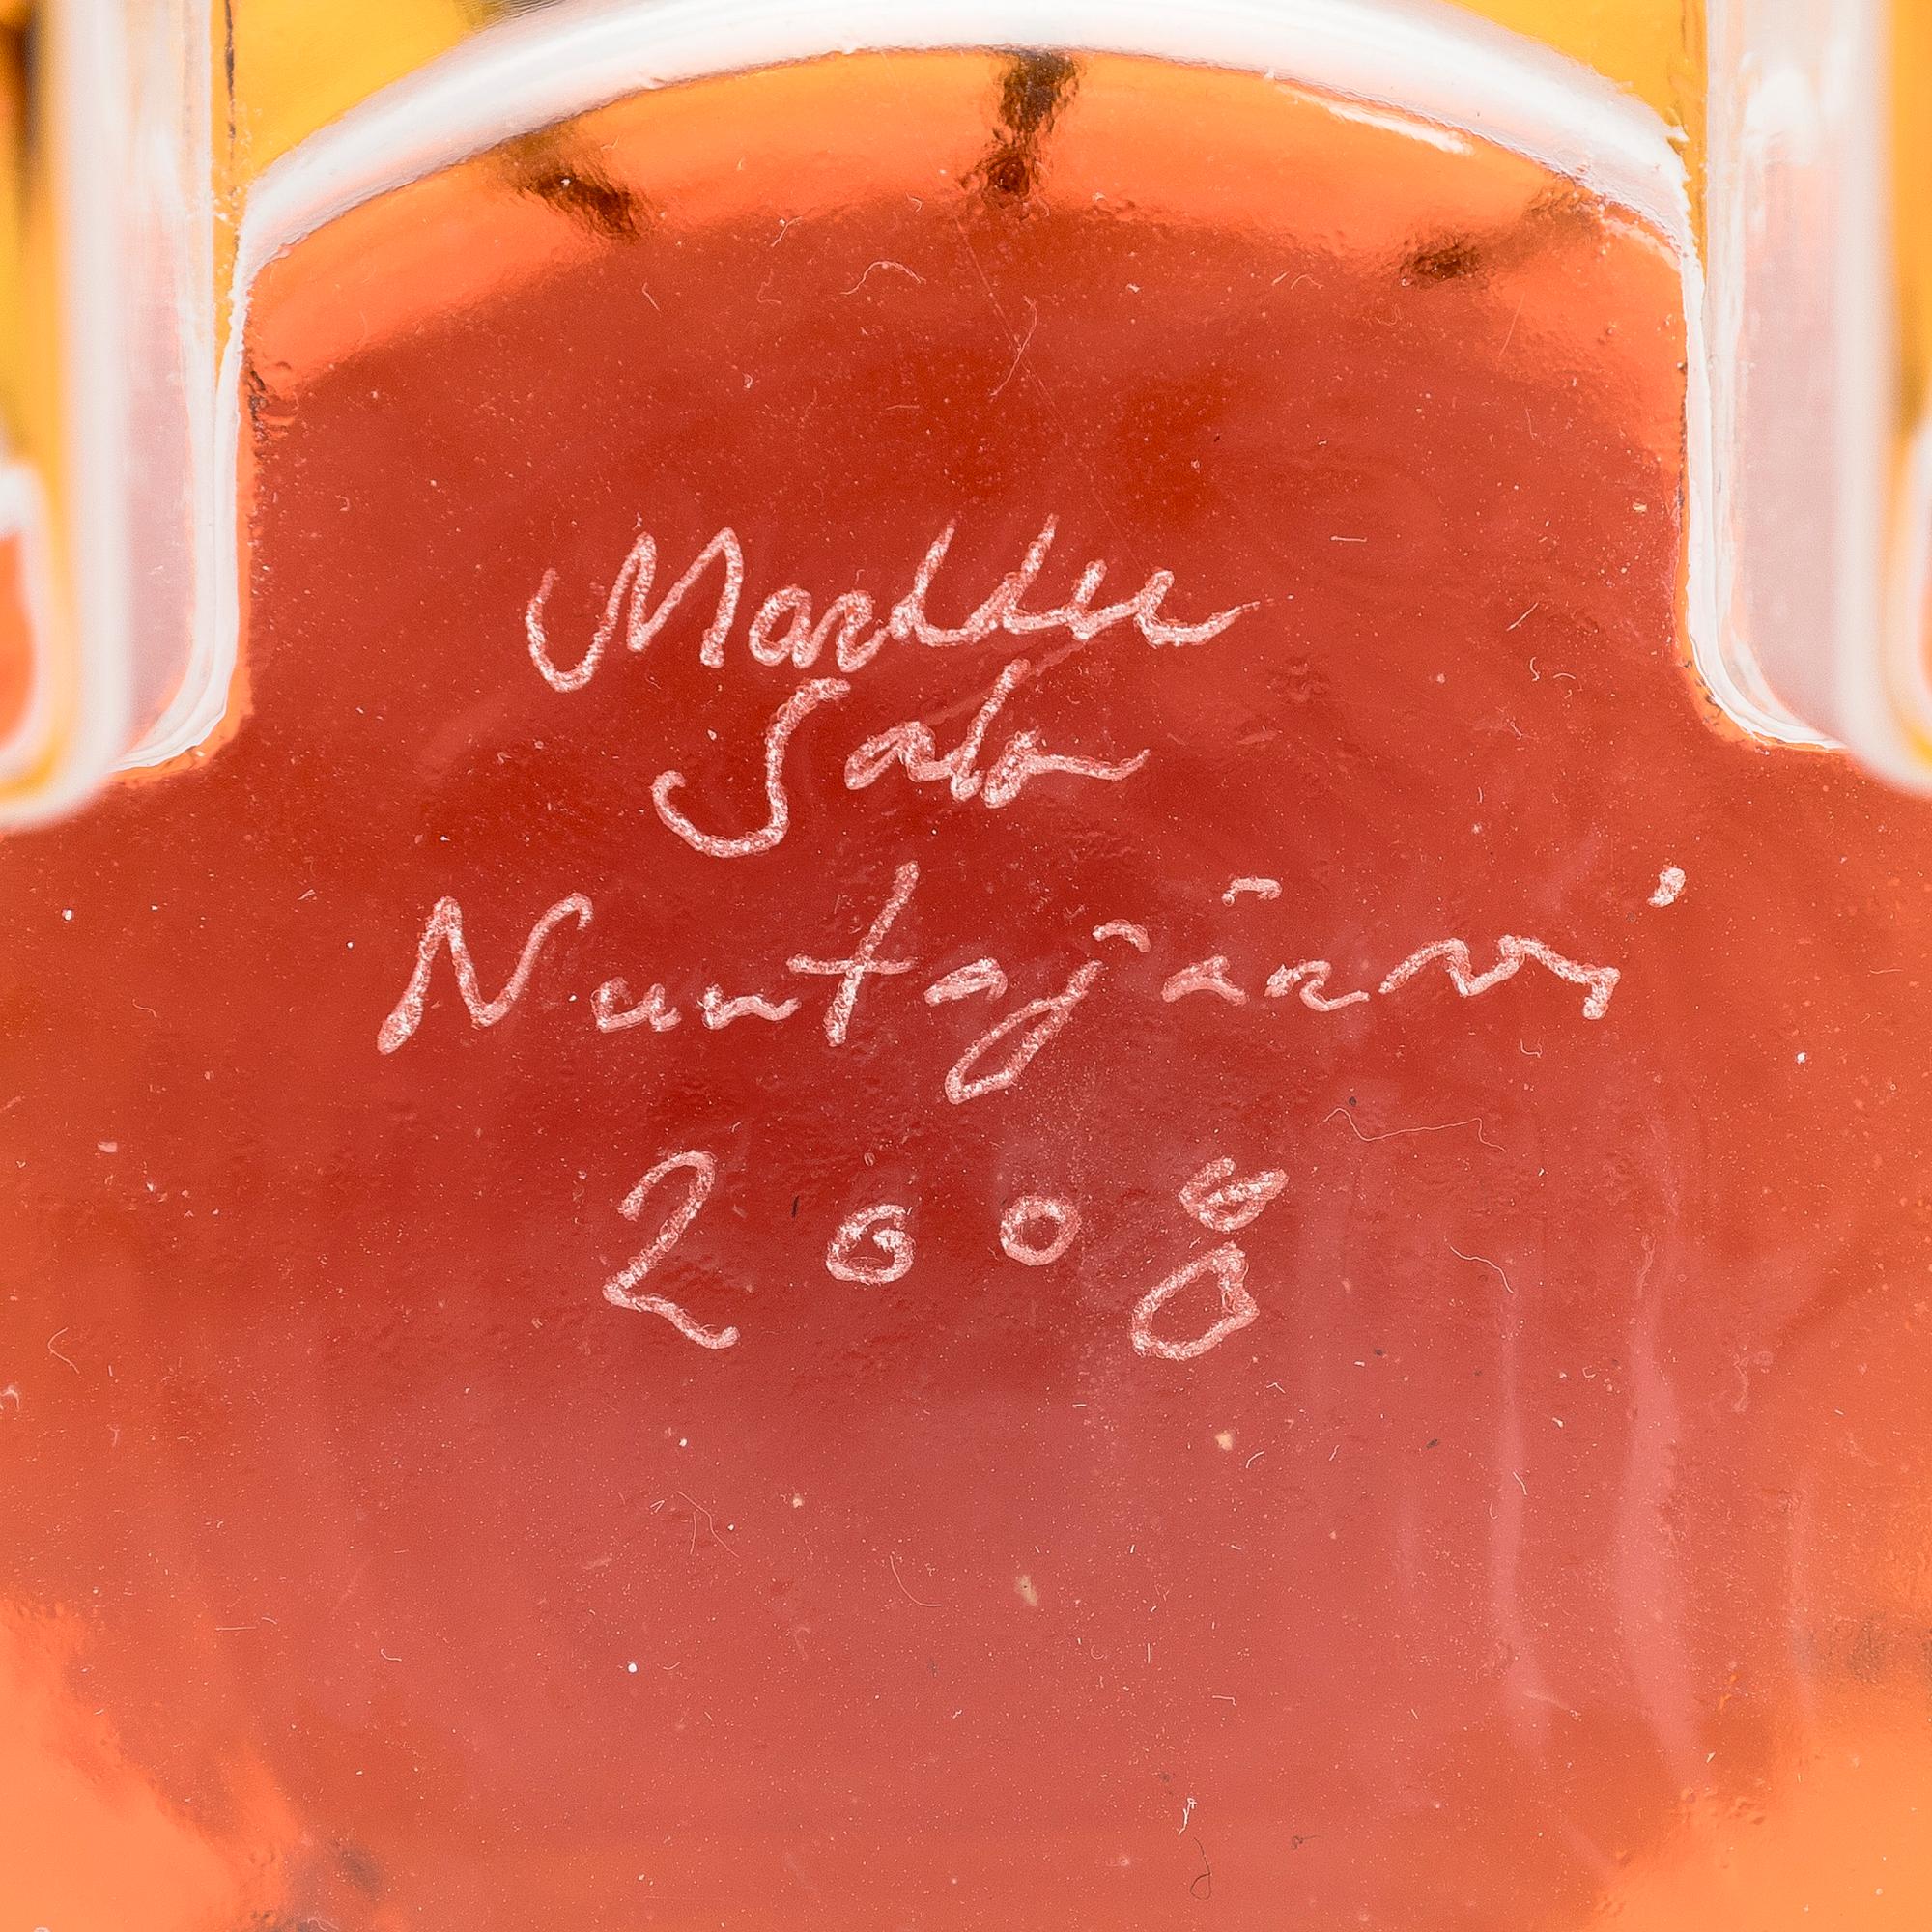 Markku
Salo
Nuutajärvi
2008